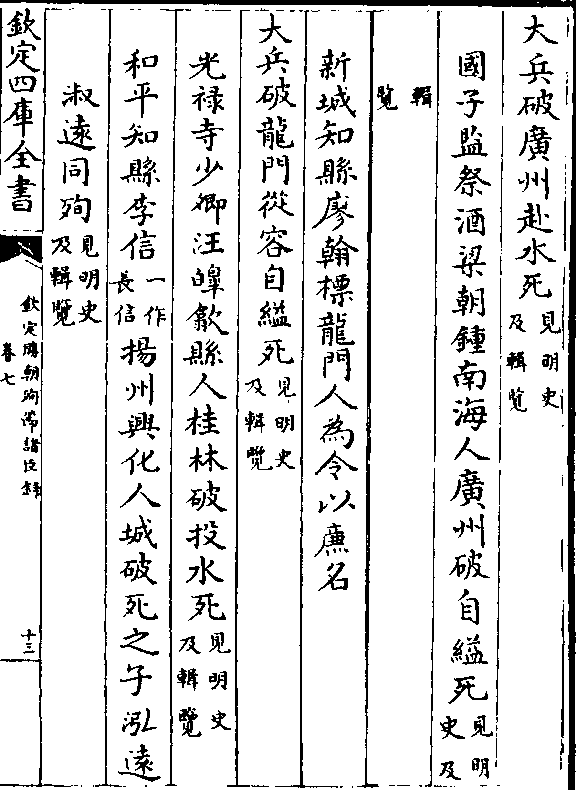 大兵破廣州赴水死見明史及輯覽
國子監祭酒梁朝鍾南海人廣州破自縊死見明史及
輯覽
新城知縣廖翰標龍門人為令以廉名
大兵破龍門從容自縊死見明史及輯覽
光禄寺少卿汪皥歙縣人桂林破投水死見明史及輯覽
和平知縣李信一作長信揚州興化人城破死之子泓遠
淑遠同殉見明史及輯覽
欽定四庫全書
欽定勝朝殉節諸臣錄
卷七
十三